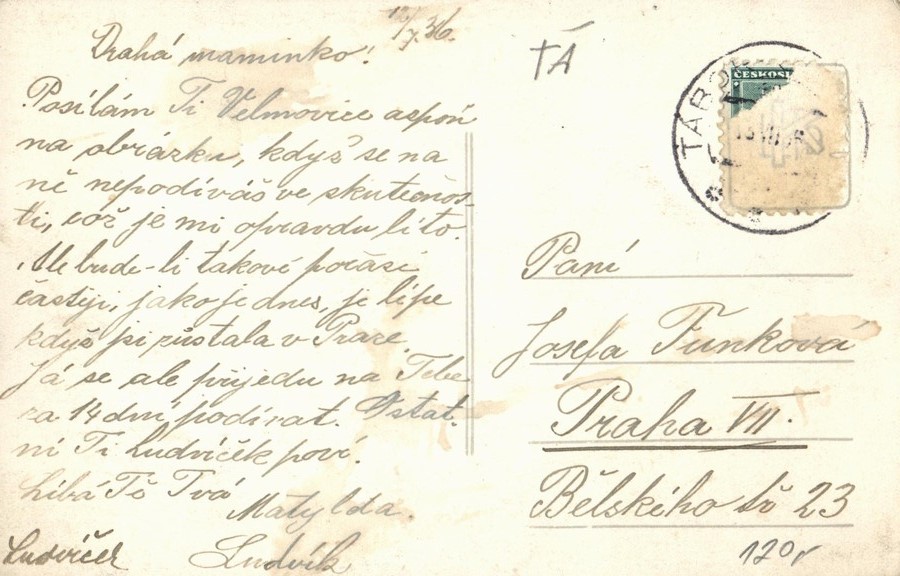 12/7.36.
Drahá maminko!
Posílám Ti Velmovice aspoň
na obrázku, když se na
ně nepodíváš ve skutečnos-
ti, což je mi opravdu líto.
Ale bude-li takové počasí
častěji, jako je dnes, je lípe
když jsi zůstala v Praze.
Já se ale přijedu na Tebe
za 14 dní podívat. Ostat-
ní Ti Ludvíček poví.
Líbá Tě Tvá
Matylda.
Ludvíček
Ludvík
TÁ
ČESKOSL
TÁB
Paní
Josefa Funková
Praha VII.
Bělského tř 23
120,